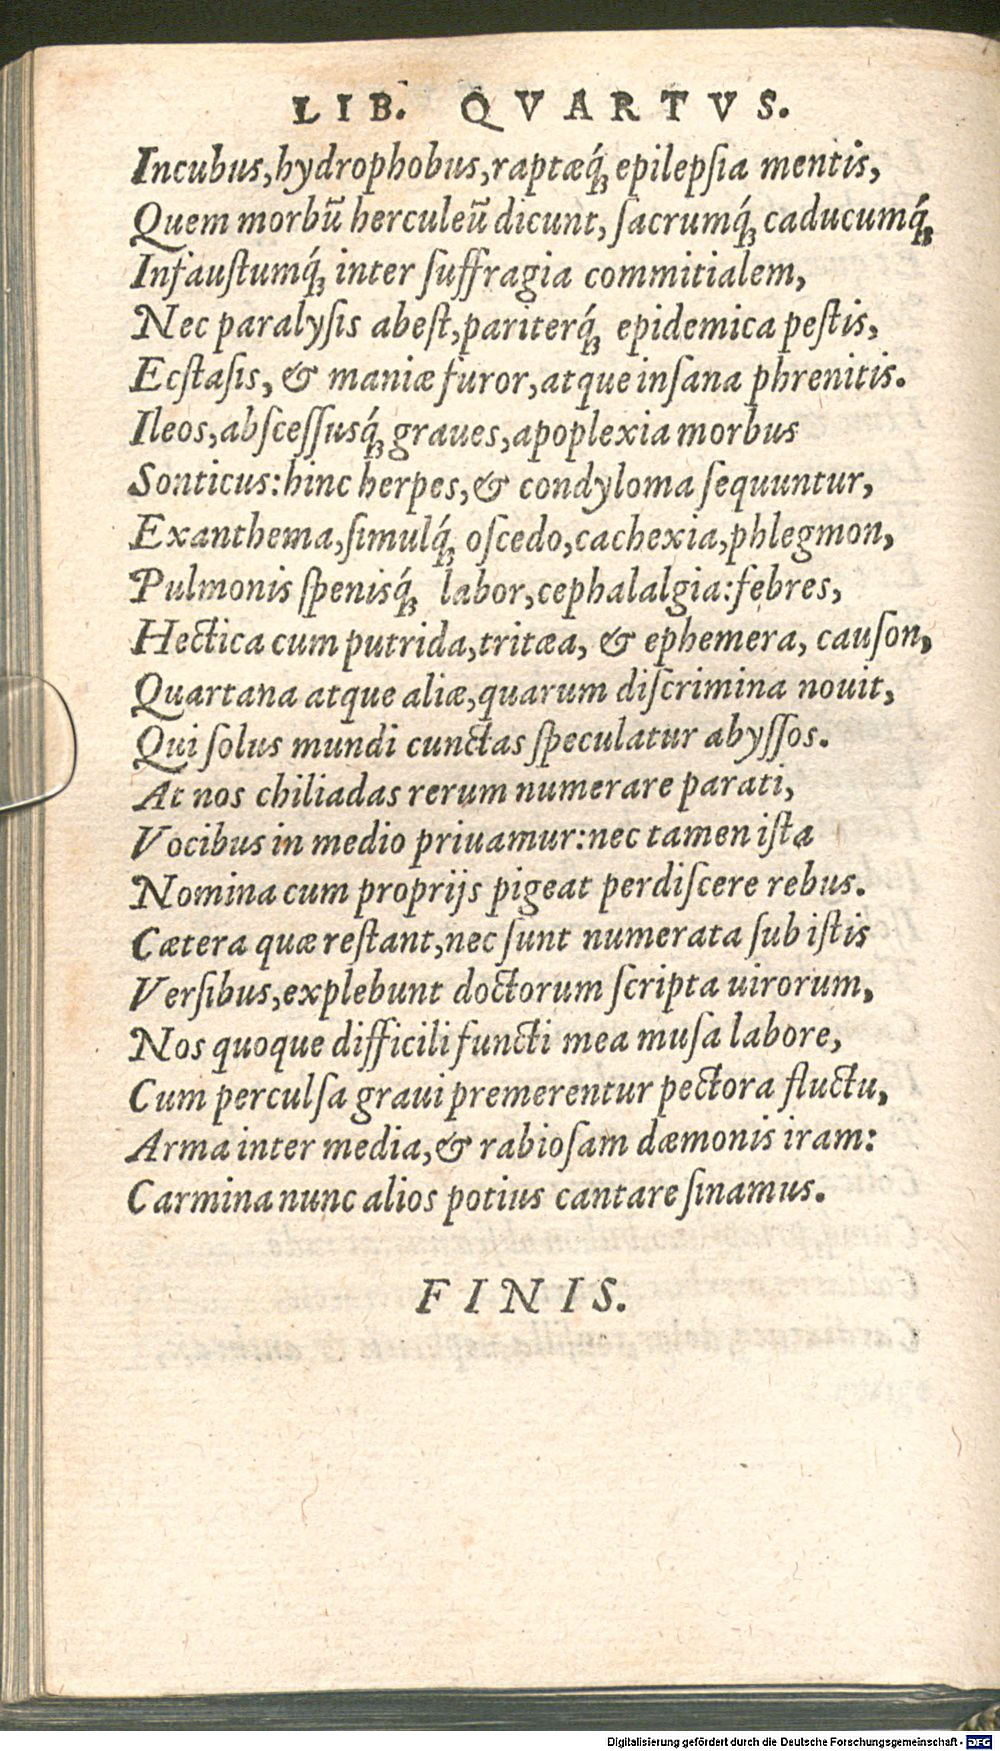 LIB. QVARTVS.
Incubus, hydrophobus, raptæq́ꝫ epilepſia mentis,
Quem morbũ herculeũ dicunt, ſacrumq́ꝫ caducumq́ꝫ
Infauſtumq́ꝫ inter ſuffragia commitialem,
Nec paralyſis abeſt, pariterq́ꝫ epidemica peſtis,
Ecſtaſis, & maniæ furor, atque inſana phrenitis.
Ileos, abſceſſusq́ꝫ graues, apoplexia morbus
Sonticus: hinc herpes, & condyloma ſequuntur,
Exanthema, ſimulq́ꝫ oſcedo, cachexia, phlegmon,
Pulmonis ſpenisq́ꝫ labor, cephalalgia: febres,
Hectica cum putrida, tritæa, & ephemera, cauſon,
Quartana atque aliæ, quarum diſcrimina nouit,
Qui ſolus mundi cunctas ſpeculatur abyſſos.
At nos chiliadas rerum numerare parati,
Vocibus in medio priuamur: nec tamen iſta
Nomina cum proprijs pigeat perdiſcere rebus.
Cætera quæ reſtant, nec ſunt numerata ſub iſtis
Verſibus, explebunt doctorum ſcripta uirorum,
Nos quoque difficili functi mea muſa labore,
Cum perculſa graui premerentur pectora fluctu,
Arma inter media, & rabioſam dæmonis iram:
Carmina nunc alios potius cantare ſinamus.
FINIS.
Digitalisierung gefördert durch die Deutsche Forschungsgemeinschaft - DFG